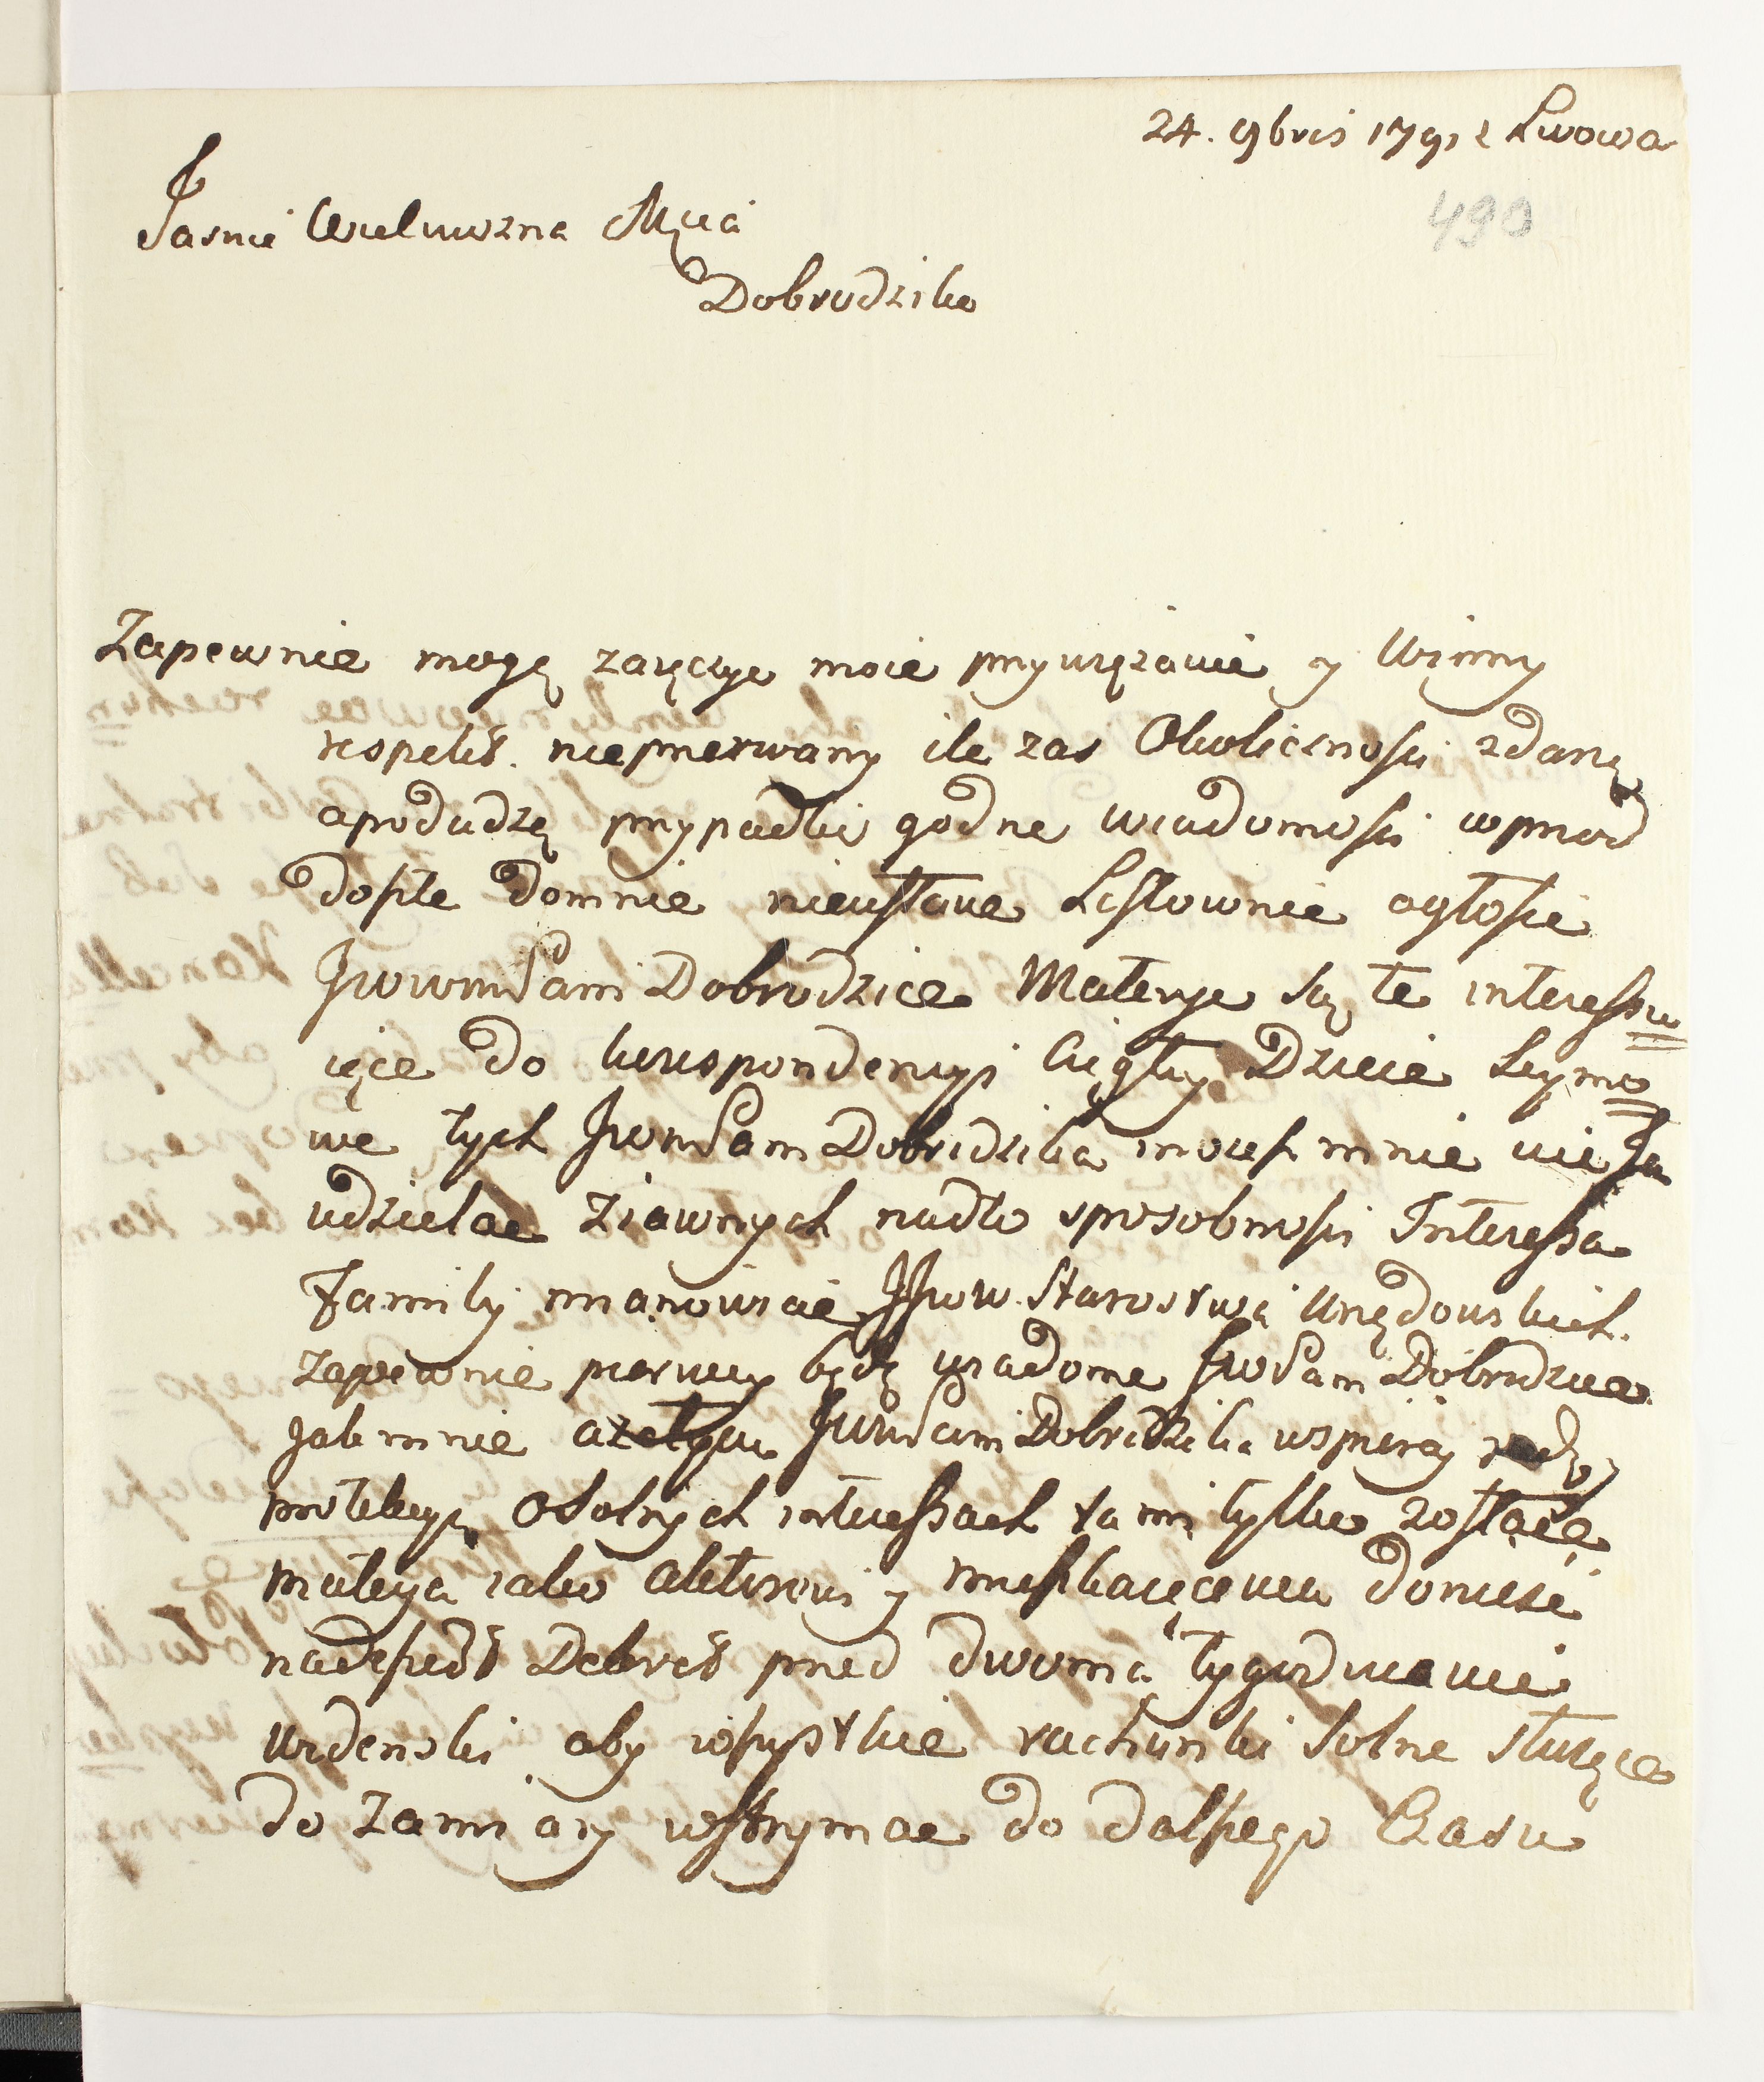 24. 9bris 1791 z Lwowa
490
Jasnie Wielmozna Mcia
Dobrodziko
Zapewnie mogę zaręczyc moie przywięzanie y Winny
respekt. nieprzerwany ile zas Okolicznosci zdarzę
apodudzę przypadki godne wiadomosci wprzod
doszłe domnie nieustane Listownie ogłosic
JwowmPani Dobrodzice Materye są te interessu=
ięce do korespondencyi Ciągły Dzieie Seymo=
we tych JwomPani Dobrodzika mozesz mnie nie
udzielac Ziawnych nadto sposobnosci Interessa
Familij mianowicie JJwow. Starostwa Urzędowskich.
Zapewnie pierwey będę wiadome JwoPani Dobrodzice
Jak mnie JwoPani Dobrodzika wspieray radą
Osolnych interessach ta mi tylko zostaie
materya iako Aktorowi y mieszkaięcemu doniesc
nadszedł Dekret przed dwoma tygodniami
Widenski aby wszystkie rachunki Solne słuzęce
do Zamiany wstrzymac do dalszego Czasu